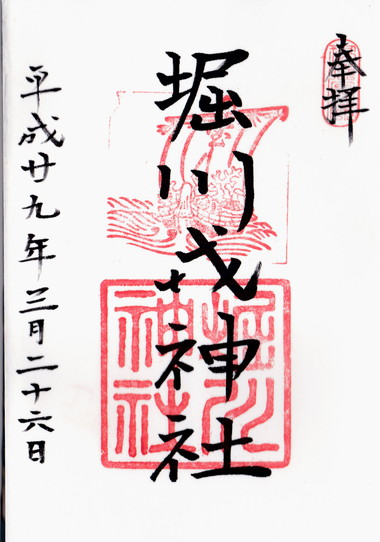 奉拝
堀川戎神社
堀川
神社
平成廿九年三月二十六日